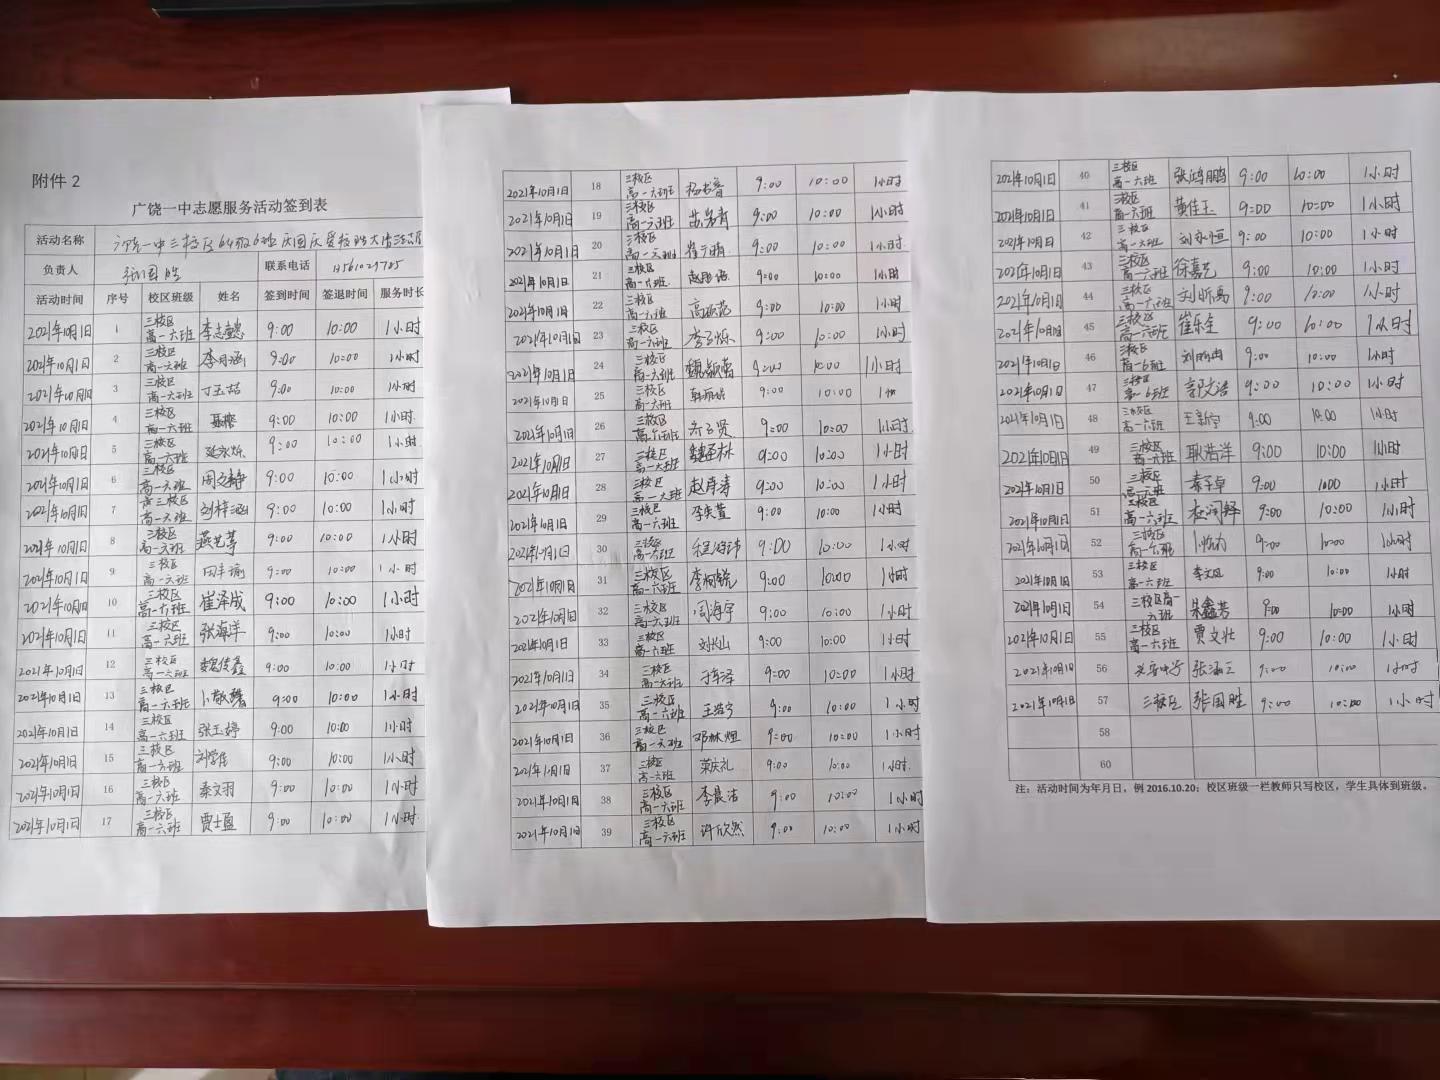 附件 2
广饶一中志愿服务活动签到表
活动名称 广饶一中三校区64级6班庆国庆爱校
负责人 张国胜 联系电话
活动时间 序号 校区班级 姓名 签到时间 签退时间 服务时长
2021年10月1日 1 三校区高一六班 9:00 10:00 1小时
2021年10月1日 2 三校区高一六班 李月涵 9:00 10:00 1小时
2021年10月1日 3 三校区高一六班 丁玉喆 9:00 10:00 1小时
2021年10月1日 4 三校区高一六班 9:00 10:00 1小时
2021年10月1日 5 三校区高一六班 9:00 10:00 1小时
2021年10月1日 6 三校区高一六班 周文静 9:00 10:00 1小时
2021年10月1日 7 高三校区高一六班 刘梓涵 9:00 10:00 1小时
2021年10月1日 8 三校区高一六班 9:00 10:00 1小时
2021年10月1日 9 三校区高一六班 9:00 10:00 1小时
2021年10月1日 10 三校区高一六班 崔泽成 9:00 10:00 1小时
2021年10月1日 11 三校区高一六班 张海洋 9:00 10:00 1小时
2021年10月1日 12 三校区高一六班 魏俊鑫 9:00 10:00 1小时
2021年10月1日 13 三校区高一六班 9:00 10:00 1小时
2021年10月1日 14 三校区高一六班 张玉婷 9:00 10:00 1小时
2021年10月1日 15 三校区高一六班 9:00 10:00 1小时
2021年10月1日 16 三校区高一六班 秦文羽 9:00 10:00 1小时
2021年10月1日 17 三校区高一六班 贾士盈 9:00 10:00 1小时
2021年10月1日 18 三校区高一六班 9:00 10:00 1小时
2021年10月1日 19 三校区高一六班 9:00 10:00 1小时
2021年10月1日 20 三校区高一六班 9:00 10:00 1小时
2021年10月1日 21 三校区高一六班 9:00 10:00 1小时
2021年10月1日 22 三校区高一六班 9:00 10:00 1小时
2021年10月1日 23 三校区高一六班 李子烁 9:00 10:00 1小时
2021年10月1日 24 三校区高一六班 9:00 10:00 1小时
2021年10月1日 25 三校区高一六班 9:00 10:00
2021年10月1日 26 三校区高一六班 9:00 10:00 1小时
2021年10月1日 27 三校区高一六班 9:00 10:00 1小时
2021年10月1日 28 三校区高一六班 9:00 10:00 1小时
2021年10月1日 29 三校区高一六班 李奕萱 9:00 10:00 1小时
30 高一六班 9:00 10:00 1小时
2021年10月1日 31 三校区高一六班 李柯锐 9:00 10:00 1小时
2021年10月1日 32 三校区高一六班 周海宇 9:00 10:00 1小时
2021年10月1日 33 三校区高一六班 刘长山 9:00 10:00 1小时
2021年10月1日 34 三校区高一六班 于年泽 9:00 10:00 1小时
2021年10月1日 35 三校区高一六班 王浩宁 9:00 10:00 1小时
2021年10月1日 36 三校区高一六班 邓林煜 9:00 10:00 1小时
37 三校区高一六班 荣庆礼 9:00 10:00 1小时
2021年10月1日 38 三校区高一六班 李晨洁 9:00 10:00 1小时
2021年10月1日 39 三校区高一六班 许欣然 9:00 10:00 1小时
2021年10月1日 40 三校区高一六班 张鸿鹏 9:00 10:00 1小时
2021年10月1日 41 三校区高一六班 黄佳玉 9:00 10:00 1小时
2021年10月1日 42 三校区高一六班 刘永恒 9:00 10:00 1小时
2021年10月1日 43 三校区高一六班 徐嘉艺 9:00 10:00 1小时
2021年10月1日 44 三校区高一六班 刘昕禹 9:00 10:00 1小时
2021年10月1日 45 三校区高一六班 崔乐全 9:00 10:00 1小时
2021年10月1日 46 三校区高一6班 9:00 10:00 1小时
2021年10月1日 47 三校区高一6班 郭文浩 9:00 10:00 1小时
2021年10月1日 48 三校区高一六班 王新宁 9:00 10:00 1小时
2021年10月1日 49 三校区高一六班 耿浩洋 9:00 10:00 1小时
2021年10月1日 50 三校区高一六班 秦子卓 9:00 1小时
2021年10月1日 51 三校区高一六班 杜润泽 9:00 10:00 1小时
2021年10月1日 52 三校区高一六班 9:00 10:00 1小时
2021年10月1日 53 三校区高一六班 9:00 10:00 1小时
2021年10月1日 54 三校区高一六班 朱鑫芳 9:00 10:00 1小时
2021年10月1日 55 三校区高一六班 贾文壮 9:00 10:00 1小时
2021年10月1日 56 9:00 10:00 1小时
2021年10月1日 57 三校区 张国胜 9:00 10:00 1小时
58
60
注：活动时间为年月日，例 2016.10.20；校区班级一栏教师只写校区，学生具体到班级。